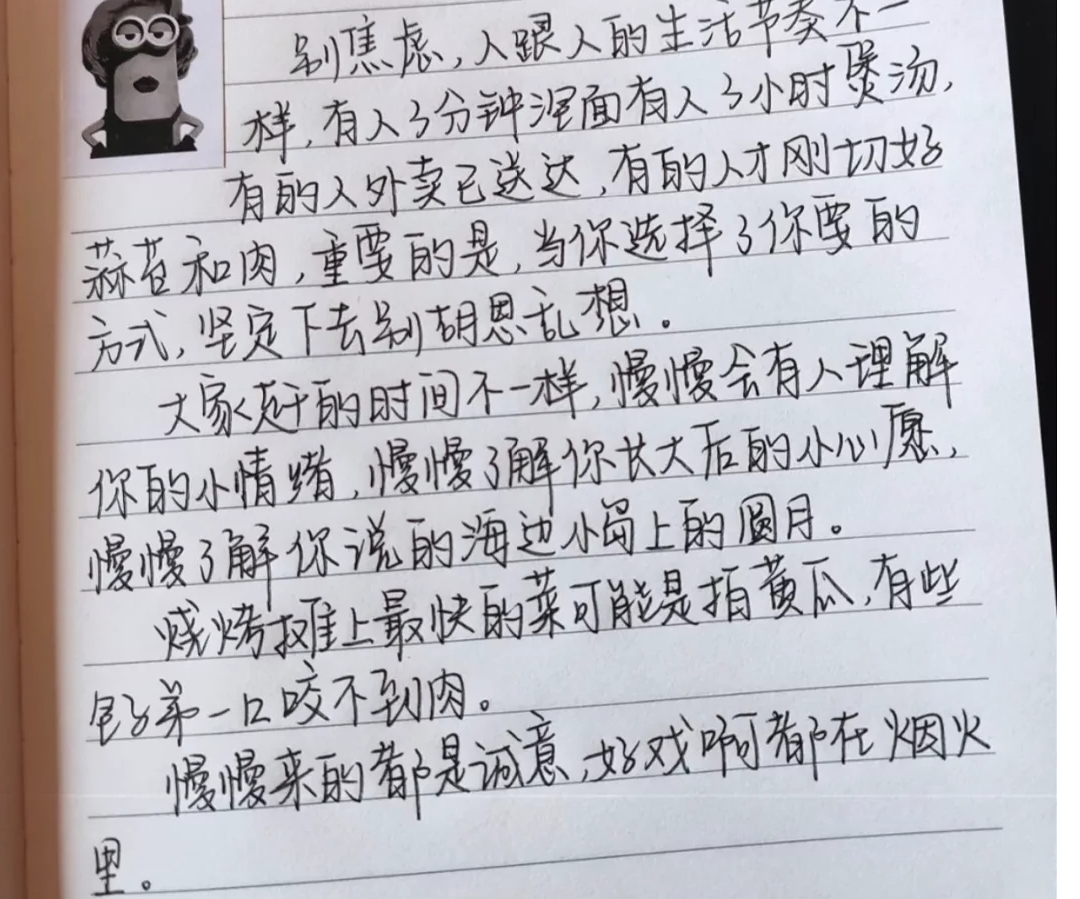 别焦虑,人跟人的生活节奏不一
样,有人3分钟泡面有人3小时煲汤,
有的人外卖已送达,有的人才刚切好
蒜苔和肉,重要的是,当你选择了你要的
方式,坚定下去别胡思乱想。
大家开的时间不一样,慢慢会有人理解
你的小情绪,慢慢了解你长大后的小心愿,
慢慢了解你说的海边小岛上的圆月。
烧烤摊上最快的菜可能是拍黄瓜,有些
包子第一口咬不到肉。
慢慢来的都是诚意,好戏啊都在烟火
里。